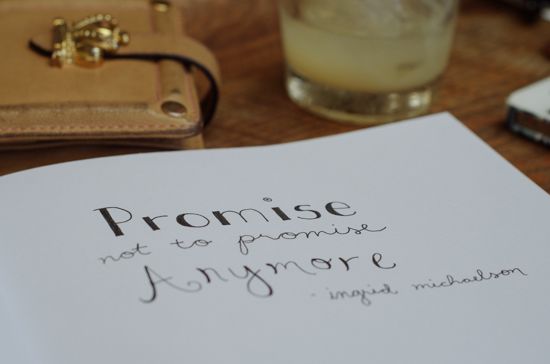 Promise
not to promise
Anymore
- ingrid michaelson